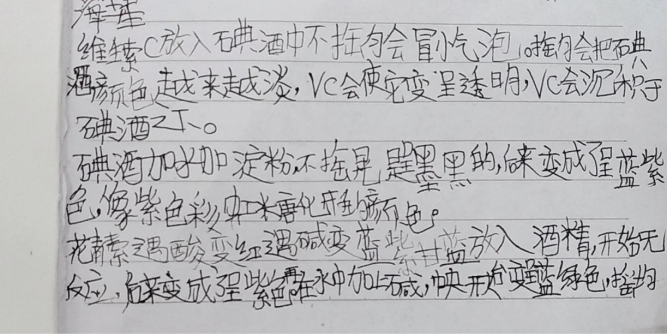 海星
维素C放入碘酒中不摇匀会冒小气泡,摇匀会把碘
酒颜色越来越淡,VC会使它变呈透明,VC会沉积于
碘酒之下。
碘酒加水加淀粉,不摇晃是墨黑的,后来变成呈蓝紫
色,像紫色彩虹糖化开的颜色。
花青素遇酸变红遇碱变蓝紫甘蓝放入酒精,开始无
反应,后来变成呈紫色再在水中加上碱,快开始变蓝绿色,摇均